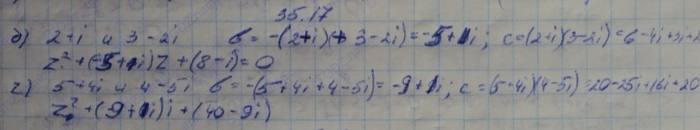 35.17
б) 2+i и 3-2i b = -(2+i)(+3-2i) = -5+1i; c=(2+i)(3-2i)=6-4i+3i+2
z² + (-5+1i)z + (8-i) = 0
г) 5+4i и 4-5i b = -(5+4i+4-5i) = -9+1i; c=(5-4i)(4-5i)=20-25i+16i+20
z² + (9+1i)i + (40-9i)